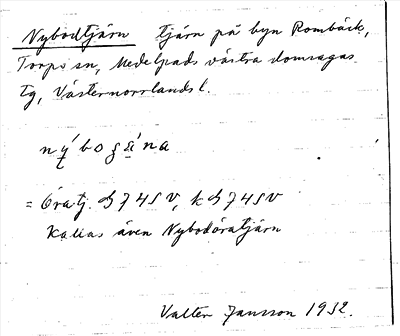 Nybodtjärn tjärn på byn Rombäck,
Torps sn, Medelpads västra domsagas
tg, Västernorrlands l.
= Óratj.
Kallas även Nybodåratjärn
Valter Jansson 1932.